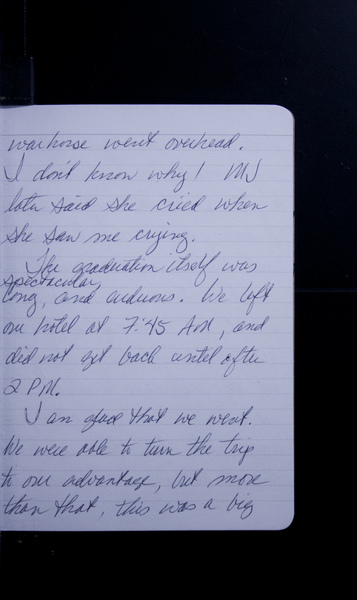 warhorse went overhead.
I don't know why! MJ
later said she cried when
she saw me crying.
The graduation itself was
spectacular,
long, and arduous. We left
our hotel at 7:45 AM, and
did not get back until after
2 PM.
I am glad that we went.
We were able to turn the trip
to our advantage, but more
than that, this was a big